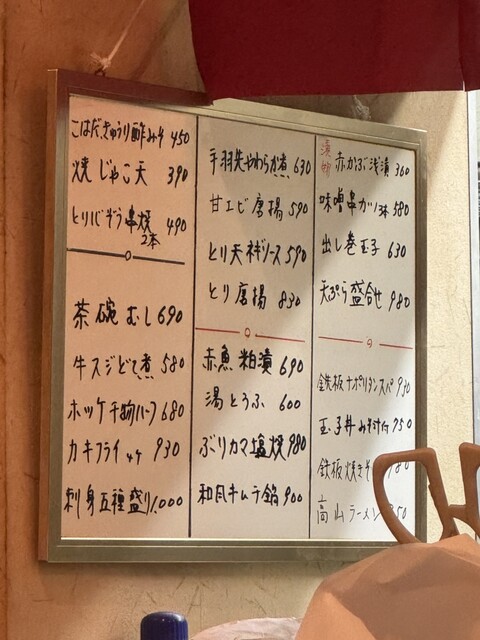 こはだ、きゅうり酢みそ 450
焼じゃこ天 390
とりじぞう串焼 2本 490
茶碗むし 690
牛スジどて煮 580
ホッケ干物ハーフ 680
カキフライ 4ケ 930
刺身五種盛り 1,000
手羽先やわらか煮 630
甘エビ唐揚 590
とり天ネギソース 590
とり唐揚 830
赤魚粕漬 690
湯とうふ 600
ぶりカマ塩焼 980
和風キムチ鍋 900
漬物 赤かぶ浅漬 360
味噌串カツ 3本 580
出し巻玉子 630
天ぷら盛合せ 980
鉄板ナポリタンスパ 930
玉子丼みそ汁付 750
鉄板焼きそ
高山ラーメン